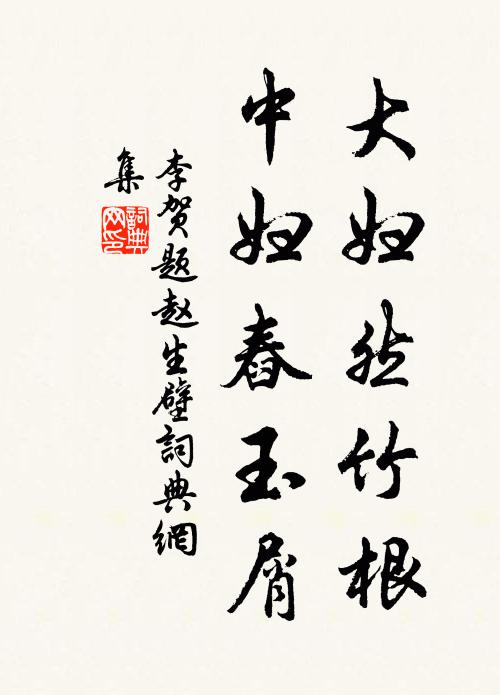 大妇然竹根
中妇舂玉屑
李贺题赵生壁詞典網
集
詞典網印